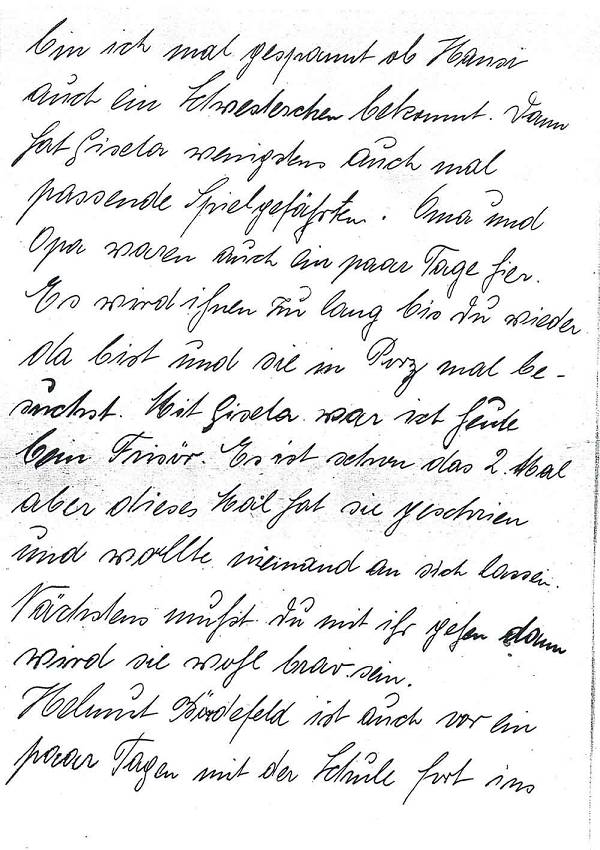 bin ich mal gespannt ob Hansi
auch ein Schwesterchen bekommt. Dann
hat Gisela wenigstens auch mal
passende Spielgefährten. Oma und
Opa waren auch ein paar Tage hier.
Es wird ihnen zu lang bis du wieder
da bist und sie in Porz mal be-
suchst. Mit Gisela war ich heute
beim Frisör. Es ist schon das 2. Mal
aber dieses Mal hat sie geschrien
und wollte niemand an sich lassen.
Nächstens mußt du mit ihr gehen dann
wird sie wohl brav sein.
Helmut ist auch vor ein
paar Tagen mit der Schule fort ins